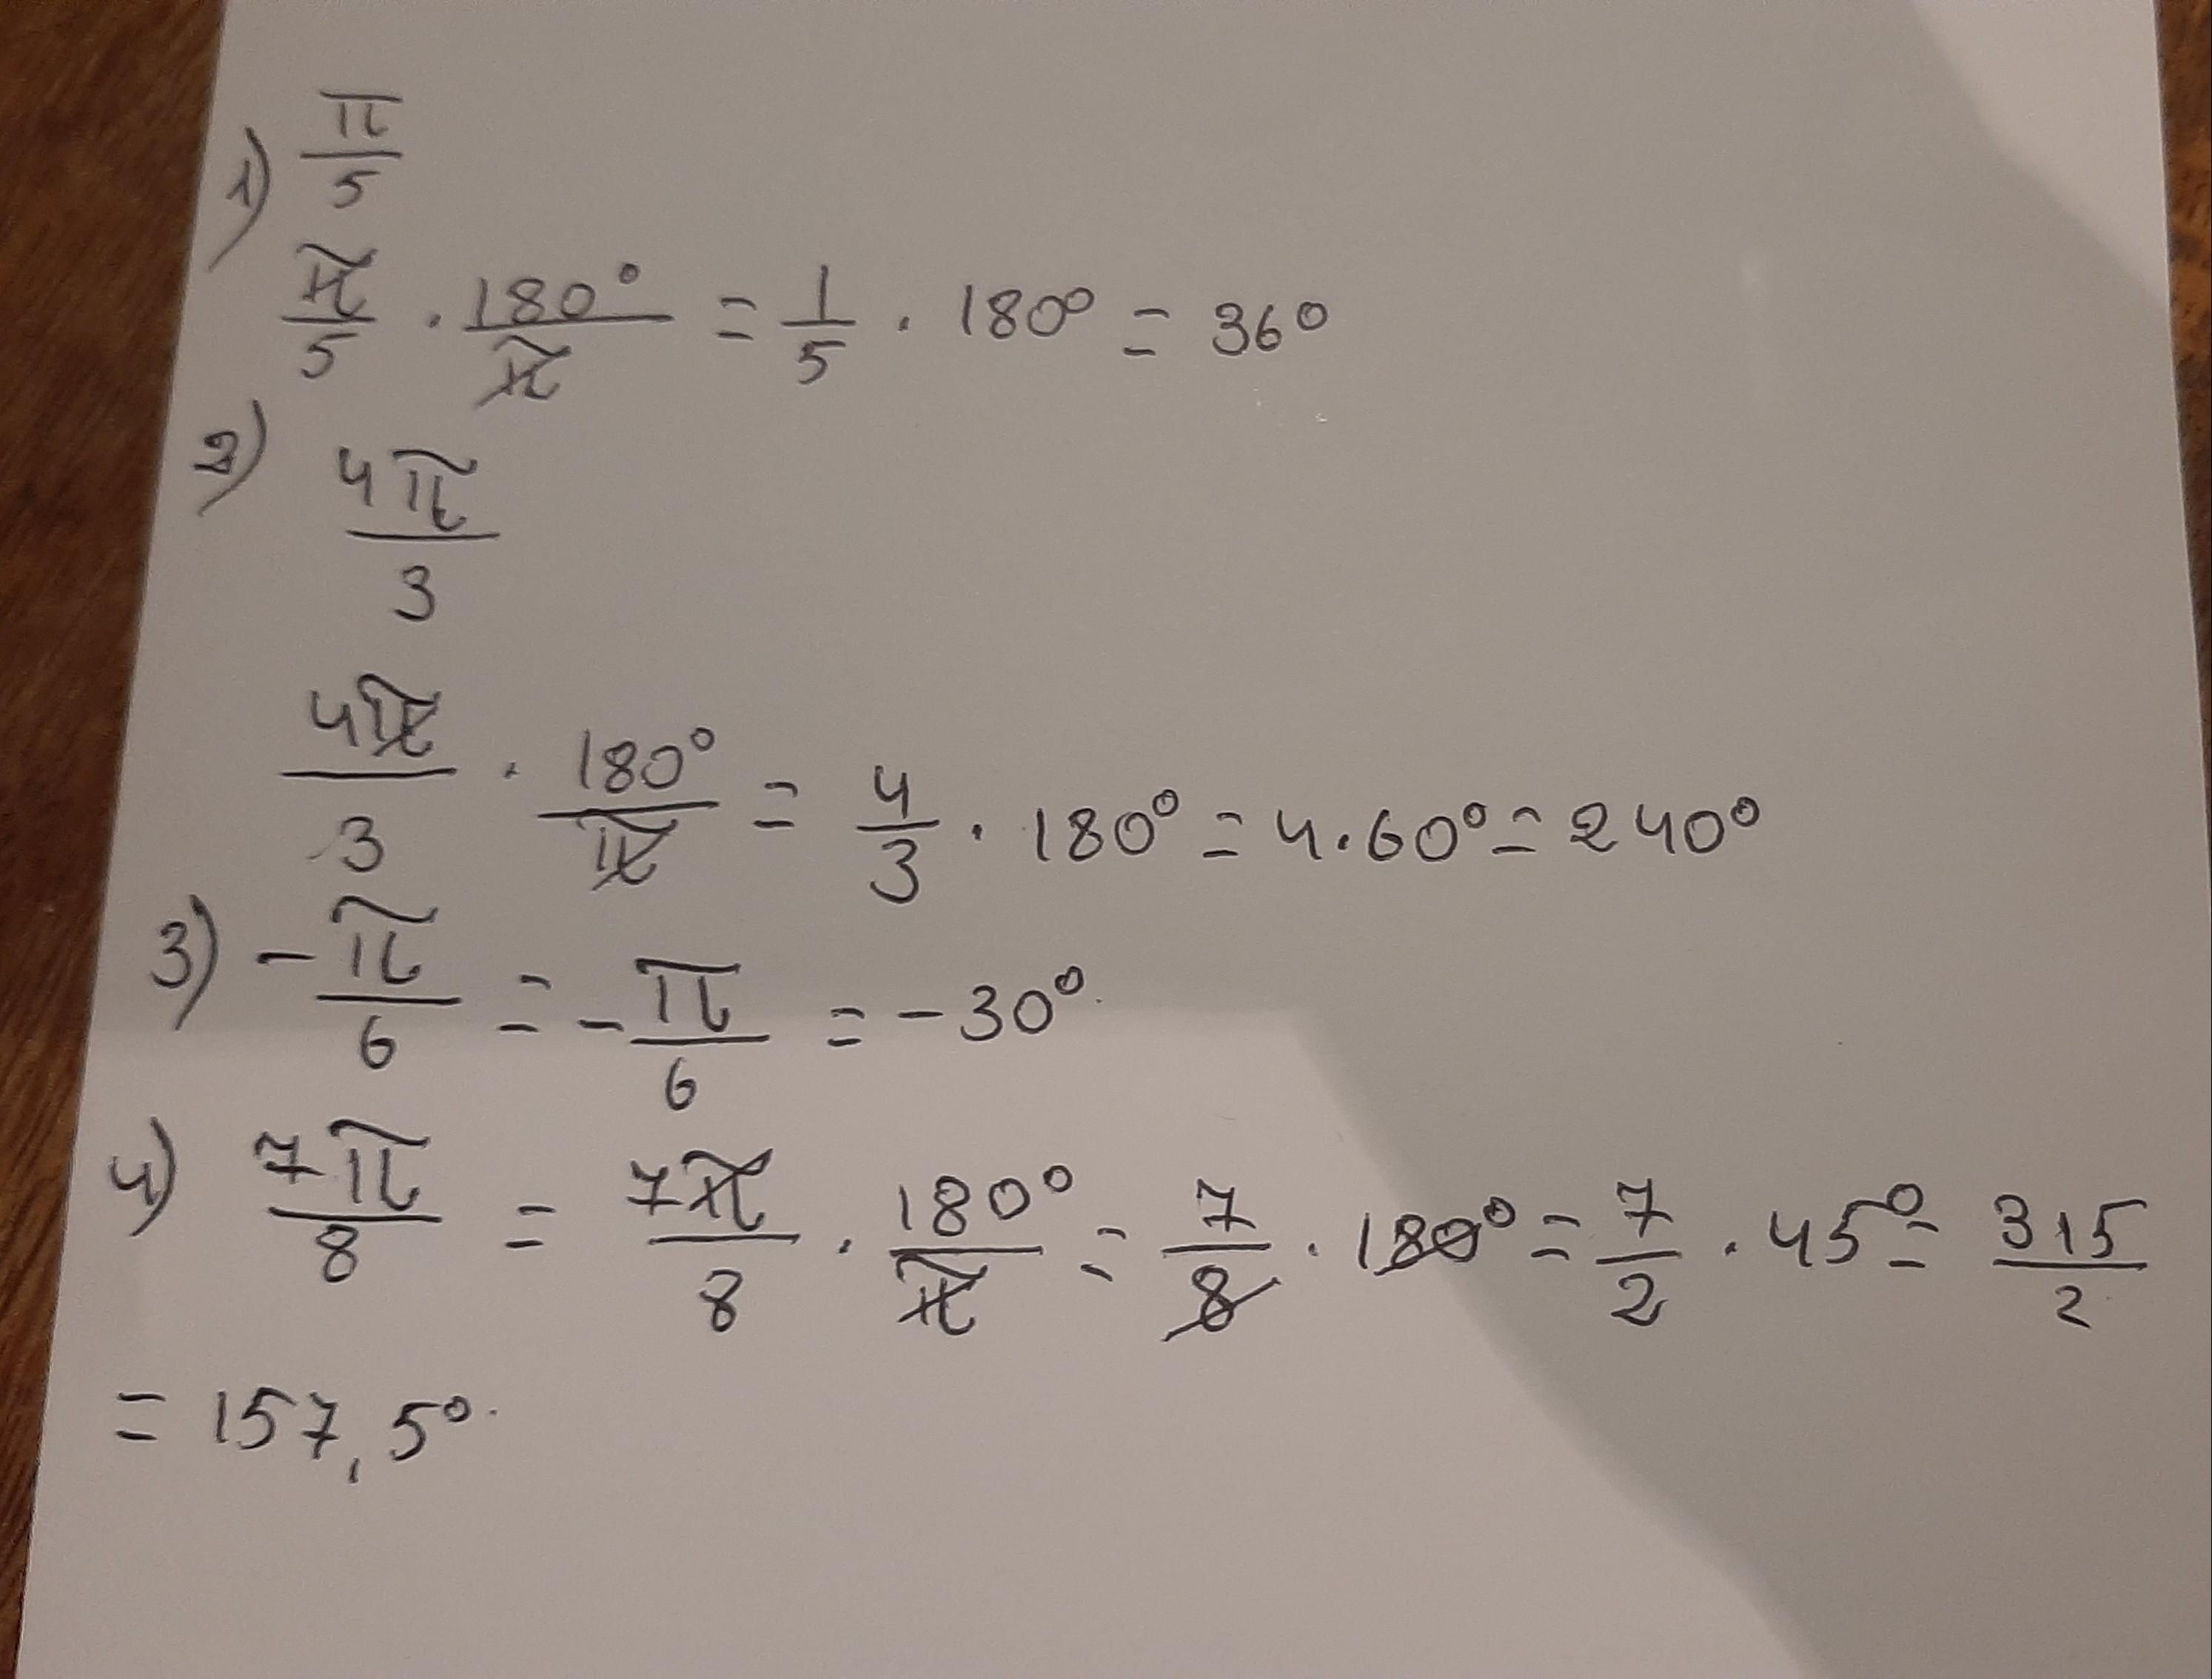 1) π/5
π/5 · 180°/π = 1/5 · 180° = 36°
2) 4π/3
4π/3 · 180°/π = 4/3 · 180° = 4·60° = 240°
3) -π/6 = -π/6 = -30°
4) 7π/8 = 7π/8 · 180°/π = 7/8 · 180° = 7/2 · 45° = 315/2
= 157,5°